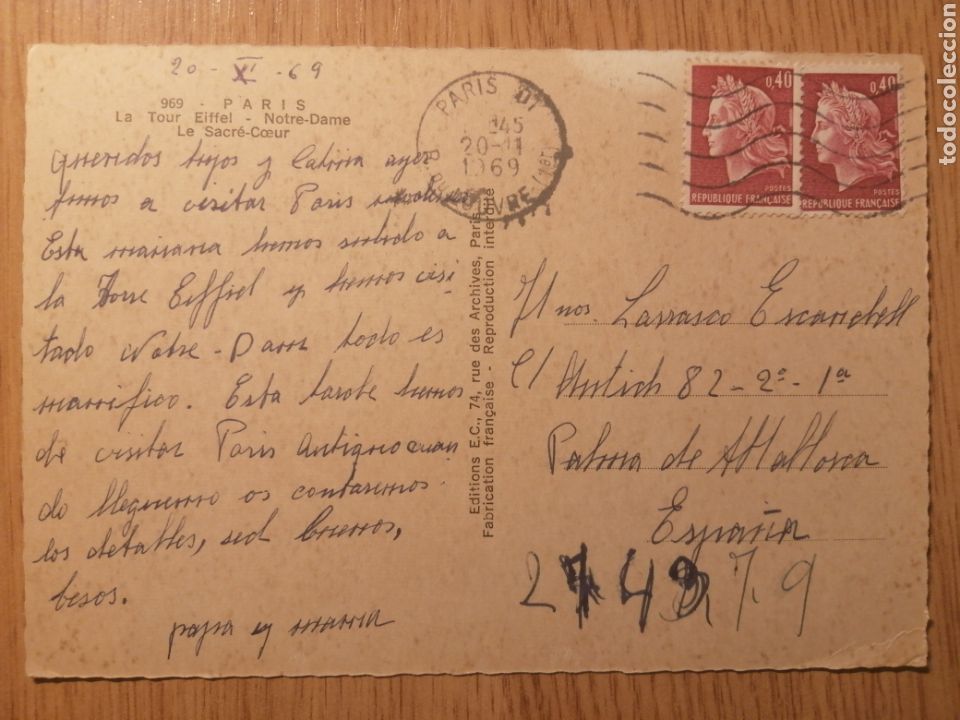 20-XI-69
969 - PARIS
La Tour Eiffel - Notre-Dame
Le Sacré-Cœur
Queridos hijos y ayer
fuimos a visitar Paris
Esta mañana hemos subido a
la Torre Eiffel y hemos visi
tado Notre-Dame todo es
manifico. Esta tarde hemos
de visitar Paris Antiguo cuan
do lleguemo os contaremos
los detalles, sed buenos,
besos.
papa y mama
Editions E.C., 74, rue des Archives, Paris
Fabrication française - Reproduction interdite
PARIS 01
45
20-11
1969
R. DU LOUVRE (1er)
0,40
POSTES
REPUBLIQUE FRANÇAISE
0,40
POSTES
REPUBLIQUE FRANÇAISE
Hnos. Larrasco Escandell
C/ Antich 82-2º-1ª
Palma de Mallorca
España
todocoleccion